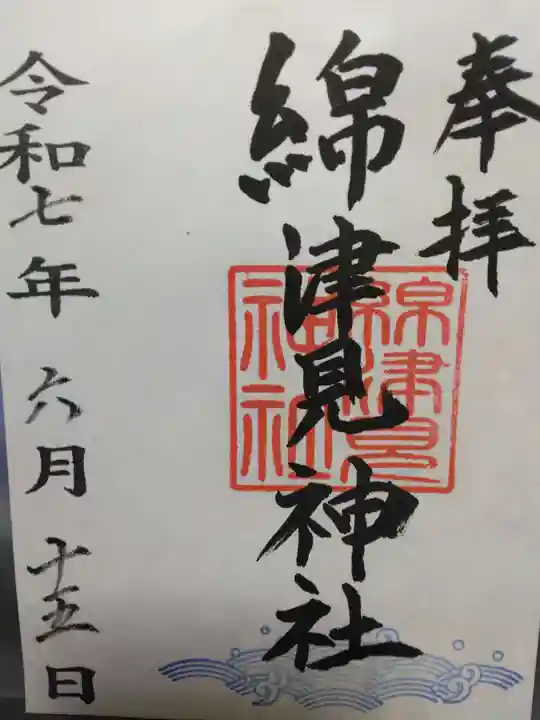 奉拝
綿津見神社
綿津見神社
令和七年 六月 十五日